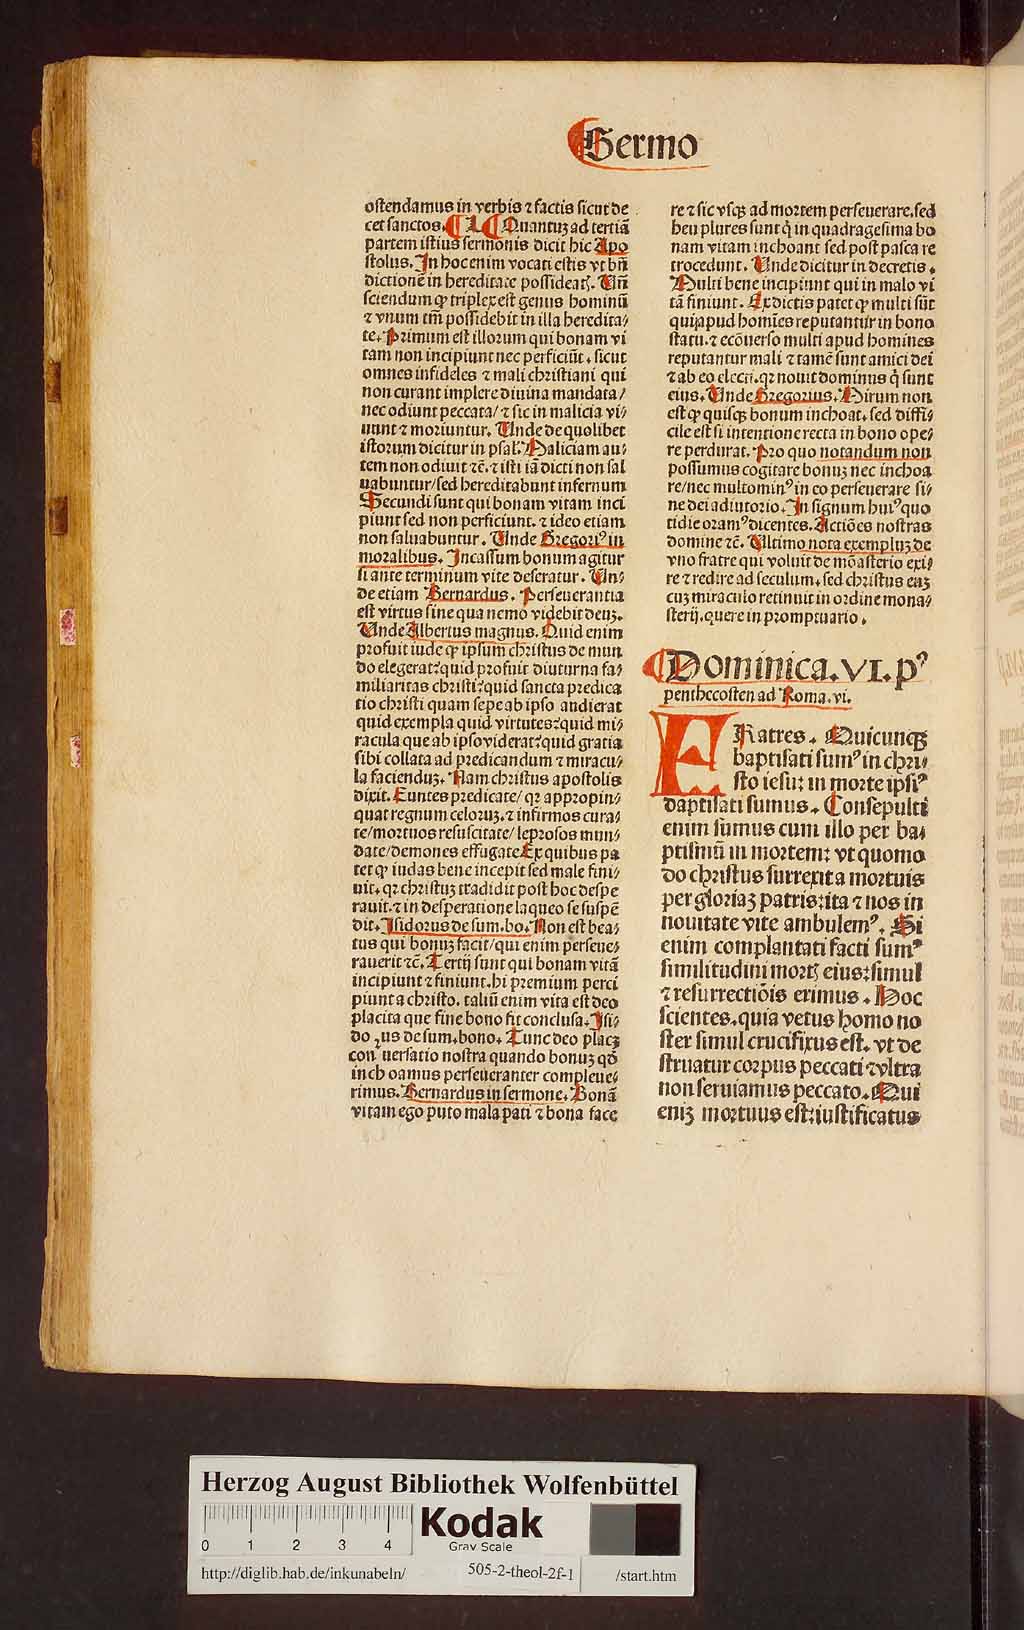 Sermo
ostendamus in verbis ⁊ factis sicut de
cet sanctos. Quantuꝫ ad tertiā
partem istius sermonis dicit hic Apo
stolus. In hoc enim vocati estis vt bñ
dictionē in hereditate possideatꝭ. Uñ
sciendum ꝙ triplex est genus hominū
⁊ vnum tm̄ possidebit in illa heredita⸗
te. Primum est illorum qui bonam vi
tam non incipiunt nec perficiūt. sicut
omnes infideles ⁊ mali christiani qui
non curant implere diuina mandata/
nec odiunt peccata/ ⁊ sic in malicia vi⸗
uunt ⁊ moriuntur. Unde de quolibet
istorum dicitur in psal. Maliciam au⸗
tem non odiuit ⁊c̄. ⁊ isti iā dicti non sal
uabuntur/sed hereditabunt infernum
Secundi sunt qui bonam vitam inci
piunt sed non perficiunt. ⁊ ideo etiam
non saluabuntur. Unde Gregoriꝰ in
moralibus. Incassum bonum agitur
si ante terminum vite deseratur. Un⸗
de etiam Bernardus. Perseuerantia
est virtus sine qua nemo videbit deuꝫ.
Unde Albertus magnus. Quid enim
profuit iude ꝙ ipsum christus de mun
do elegerat:quid profuit diuturna fa⸗
miliaritas christi:quid sancta predica
tio christi quam sepe ab ipso audierat
quid exempla quid virtutes:quid mi⸗
racula que ab ipso viderat:quid gratia
sibi collata ad predicandum ⁊ miracu⸗
la facienduꝫ. Nam christus apostolis
dixit. Euntes predicate/ qꝛ appropin⸗
quat regnum celoruꝫ. ⁊ infirmos cura⸗
te/mortuos resuscitate/ leprosos mun⸗
date/demones effugate. Ex quibus pa
tet ꝙ iudas bene incepit sed male fini⸗
uit. qꝛ christuꝫ tradidit post hoc despe
rauit. ⁊ in desperatione laqueo se suspē
dit. Isidorus de sum. bo. Non est bea⸗
tus qui bonuꝫ facit/qui enim perseue⸗
rauerit ⁊c̄. Tertij sunt qui bonam vitā
incipiunt ⁊ finiunt. hi premium perci
piunt a christo. taliū enim vita est deo
placita que fine bono fit conclusa. Isi⸗
do ꝛus de sum. bono. Tunc deo placꝫ
con uersatio nostra quando bonuꝫ qđ
inch oamus perseueranter compleue⸗
rimus. Bernardus in sermone. Bonā
vitam ego puto mala pati ⁊ bona face
re ⁊ sic vsqꝫ ad mortem perseuerare. sed
heu plures sunt q̇ in quadragesima bo
nam vitam inchoant sed post pasca re
trocedunt. Unde dicitur in decretis.
Multi bene incipiunt qui in malo vi
tā finiunt. Ex dictis patet ꝙ multi sūt
qui apud homīes reputantur in bono
statu. ⁊ ecōuerso multi apud homines
reputantur mali ⁊ tamē sunt amici dei
⁊ ab eo electi. qꝛ nouit dominus q̇ sunt
eius. Unde Gregorius. Mirum non
est ꝙ quisqꝫ bonum inchoat. sed diffi⸗
cile est si intentione recta in bono ope⸗
re perdurat. Pro quo notandum non
possumus cogitare bonuꝫ nec inchoa
re/nec multominꝰ in eo perseuerare si⸗
ne dei adiutorio. In signum huiꝰ quo
tidie oramꝰ dicentes. Actiōes nostras
domine ⁊c̄. Ultimo nota exempluꝫ de
vno fratre qui voluit de mōasterio exi⸗
re ⁊ redire ad seculum. sed christus eaꝫ
cuꝫ miraculo retinuit in ordine mona⸗
sterij. quere in promptuario.
Dominica. VI. pꝰ
penthecosten ad Roma. vi.
FRatres. Quicunqꝫ
baptisati sumꝰ in chri⸗
sto iesu: in morte ipsiꝰ
baptisati sumus. Consepulti
enim sumus cum illo per ba⸗
ptismū in mortem: vt quomo
do christus surrexit a mortuis
per gloriaꝫ patris:ita ⁊ nos in
nouitate vite ambulemꝰ. Si
enim complantati facti sumꝰ
similitudini mortꝭ eius:simul
⁊ resurrectiōis erimus. Hoc
scientes. quia vetus homo no
ster simul crucifixus est. vt de
struatur corpus peccati ⁊ vltra
non seruiamus peccato. Qui
eniꝫ mortuus est:iustificatus
Herzog August Bibliothek Wolfenbüttel
0 1 2 3 4
Kodak
Gray Scale
http://diglib.hab.de/inkunabeln/ 505-2-theol-2f-1 /start.htm